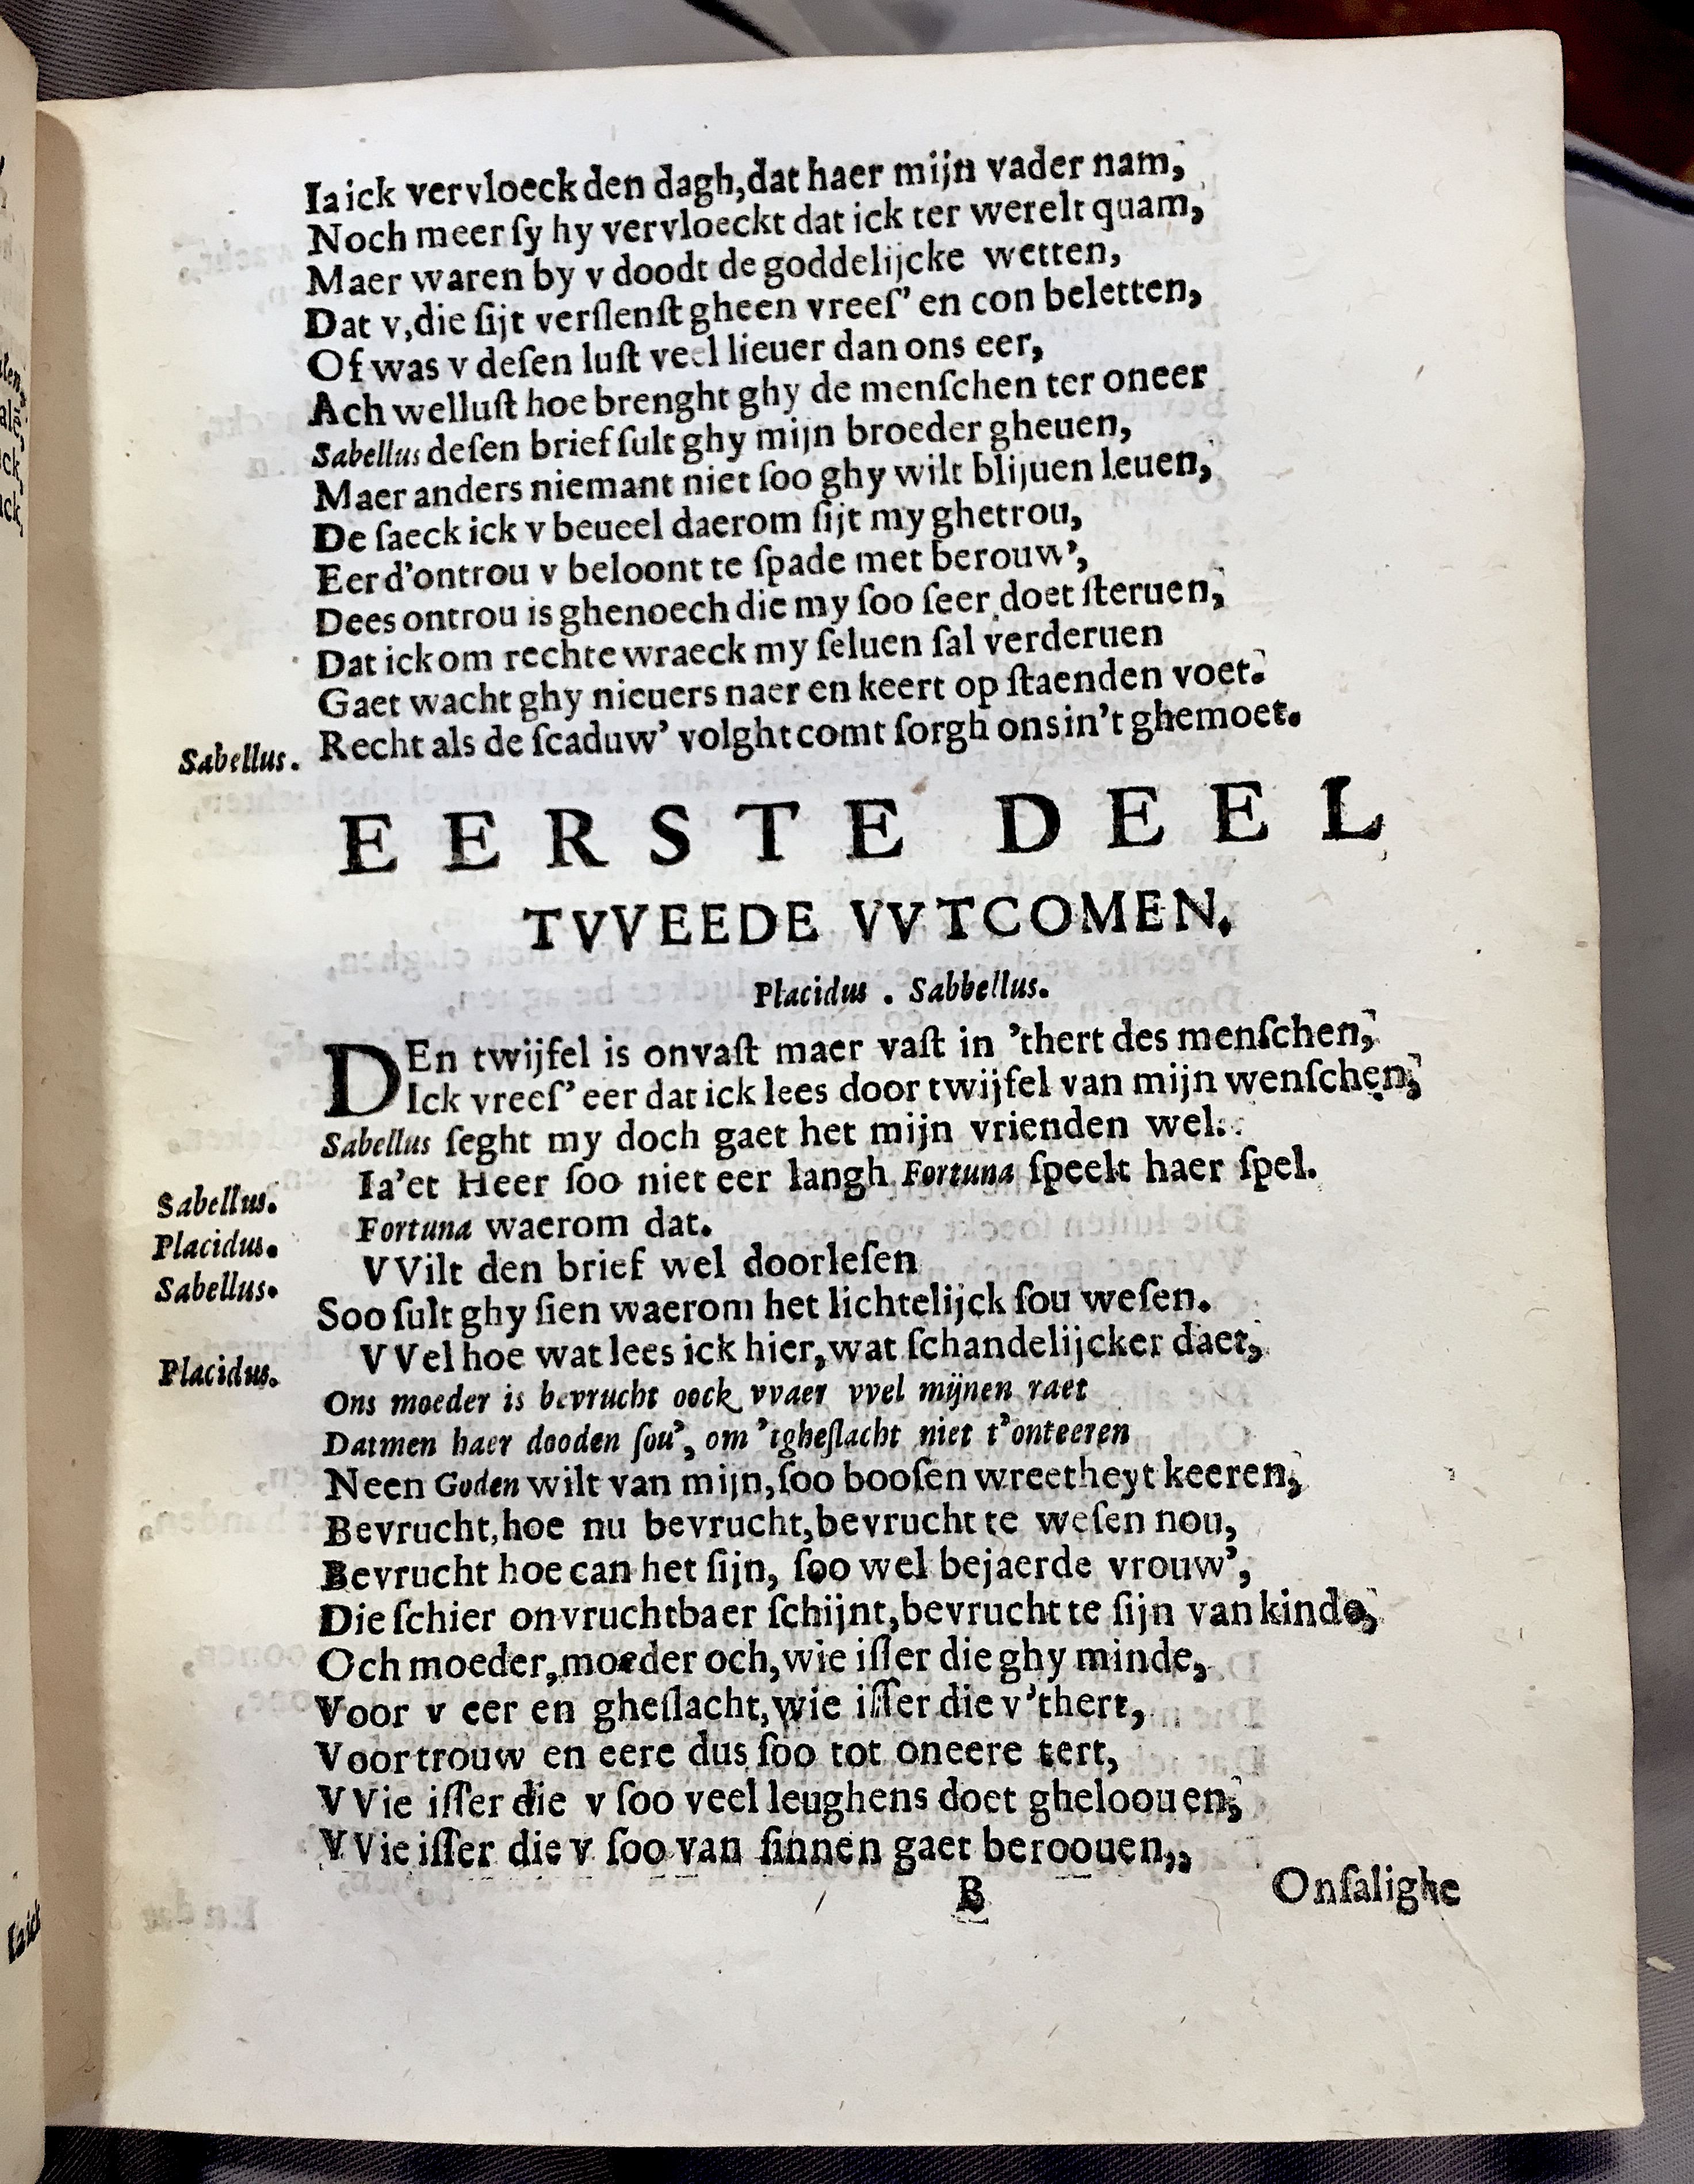 Ia ick vervloeck den dagh, dat haer mijn vader nam,
Noch meer ſy hy vervloeckt dat ick ter werelt quam,
Maer waren by v doodt de goddelijcke wetten,
Dat v, die ſijt verſlenſt gheen vreeſ' en con beletten,
Of was v deſen luſt veel lieuer dan ons eer,
Ach welluſt hoe brenght ghy de menſchen ter oneer
Sabellus deſen brief ſult ghy mijn broeder gheuen,
Maer anders niemant niet ſoo ghy wilt blijuen leuen,
De ſaeck ick v beueel daerom ſijt my ghetrou,
Eer d'ontrou v beloont te ſpade met berouw',
Dees ontrou is ghenoech die my ſoo ſeer doet ſteruen,
Dat ick om rechte wraeck my ſeluen ſal verderuen
Gaet wacht ghy nieuers naer en keert op ſtaenden voet.
Sabellus. Recht als de ſcaduw' volght comt ſorgh ons in't ghemoet.
EERSTE DEEL
TVVEEDE VVTCOMEN.
Placidus. Sabbellus.
DEn twijfel is onvaſt maer vaſt in 'thert des menſchen,
Ick vreeſ' eer dat ick lees door twijfel van mijn wenſchen,
Sabellus ſeght my doch gaet het mijn vrienden wel.
Sabellus. Ia'et Heer ſoo niet eer langh Fortuna ſpeelt haer ſpel.
Placidus. Fortuna waerom dat.
Sabellus. VVilt den brief wel doorleſen
Soo ſult ghy ſien waerom het lichtelijck ſou weſen.
Placidus. VVel hoe wat lees ick hier, wat ſchandelijcker daet,
Ons moeder is bevrucht oock vvaer vvel mijnen raet
Datmen haer dooden ſou', om 'tgheſlacht niet t'onteeren
Neen Goden wilt van mijn, ſoo booſen wreetheyt keeren,
Bevrucht, hoe nu bevrucht, bevrucht te weſen nou,
Bevrucht hoe can het ſijn, ſoo wel bejaerde vrouw',
Die ſchier onvruchtbaer ſchijnt, bevrucht te ſijn van kinde,
Och moeder, moeder och, wie iſſer die ghy minde,
Voor v eer en gheſlacht, wie iſſer die v 'thert,
Voor trouw en eere dus ſoo tot oneere tert,
VVie iſſer die v ſoo veel leughens doet gheloouen,
VVie iſſer die v ſoo van ſinnen gaet beroouen,,
B
Onſalighe
Ia ick